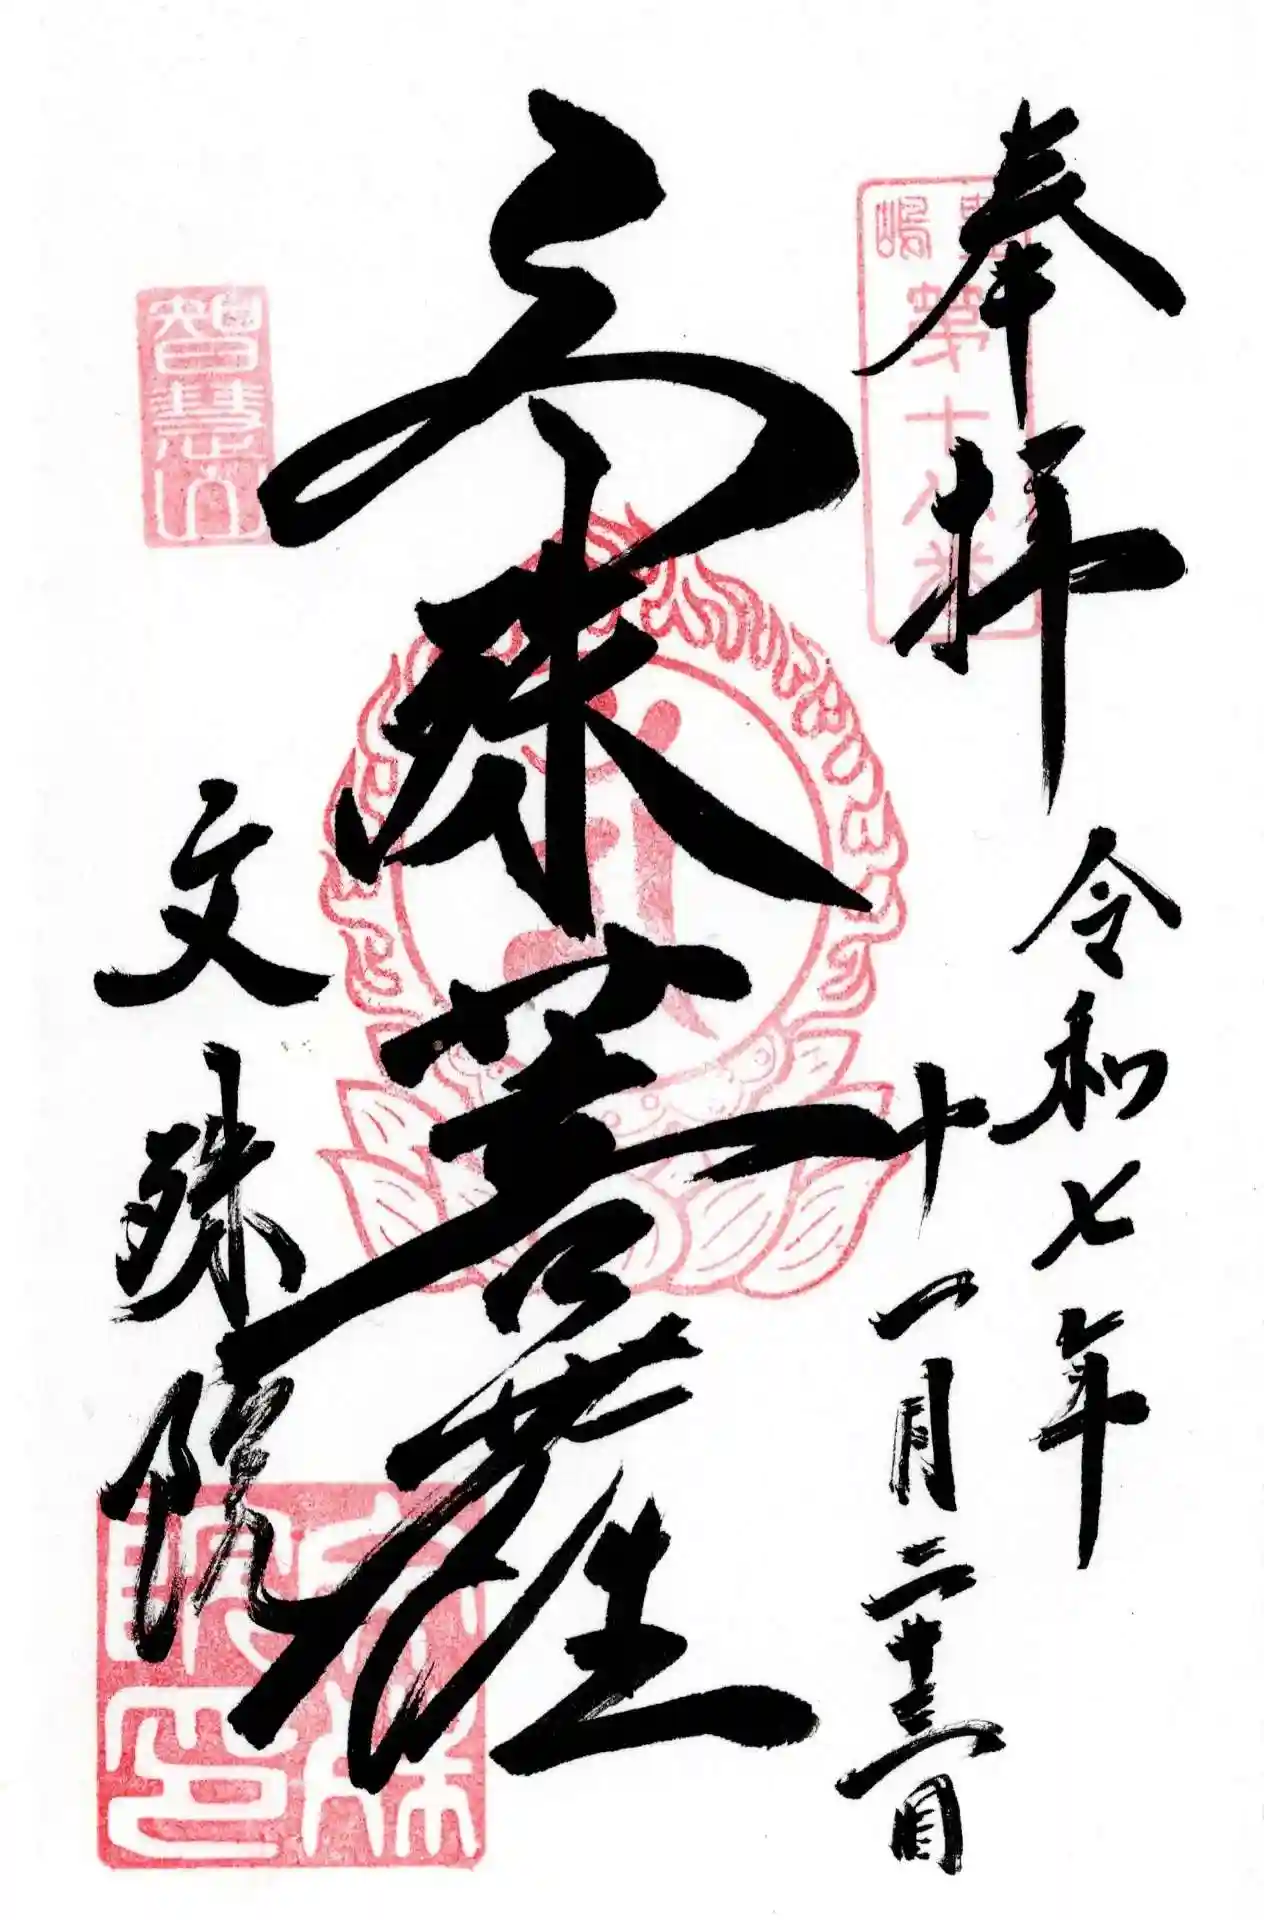 奉拝
豊嶋
第十八番
令和七年
十一月二十三日
文殊菩薩
智慧山
文殊院
文殊院印